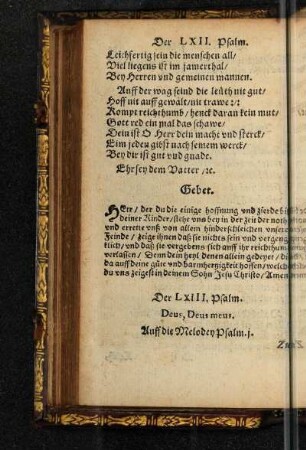 Der LXII. Psalm.
Leichfertig sein die menschen all/
Viel liegens ist im jamerthal/
Bey Herren und gemeinen mannen.
Auff der wag seind die leüth nit gut/
Hoff nit auff gewalt/nit trawe :/:
Kompt reichthumb/henck daran kein mut/
Gott red ein mal das schawe/
Dein ist O Herr dein macht und sterck/
Eim jeden gibst nach seinem werck/
Bey dir ist gut und gnade.
Ehr sey dem Vatter/ ꝛc.
Gebet.
HErr/ der du die einige hoffnung und zierde bist
deiner Kinder/stehe uns bey in der zeit der noth
und errette unß von allen hinderschlichen unserer
Feinde/ zeige ihnen daß sie nichts sein und vergeng
lich/ und daß sie vergebens auff ihr reichthumb
verlassen/ Denn dein heyl denen allein gedeyet/
da auff deine güte und barmhertzigkeit hoffen/welch
du uns zeigest in deinem Sohn Jesu Christo/ Amen
Der LXIII. Psalm.
Deus, Deus meus.
Auff die Melodey Psalm. j.